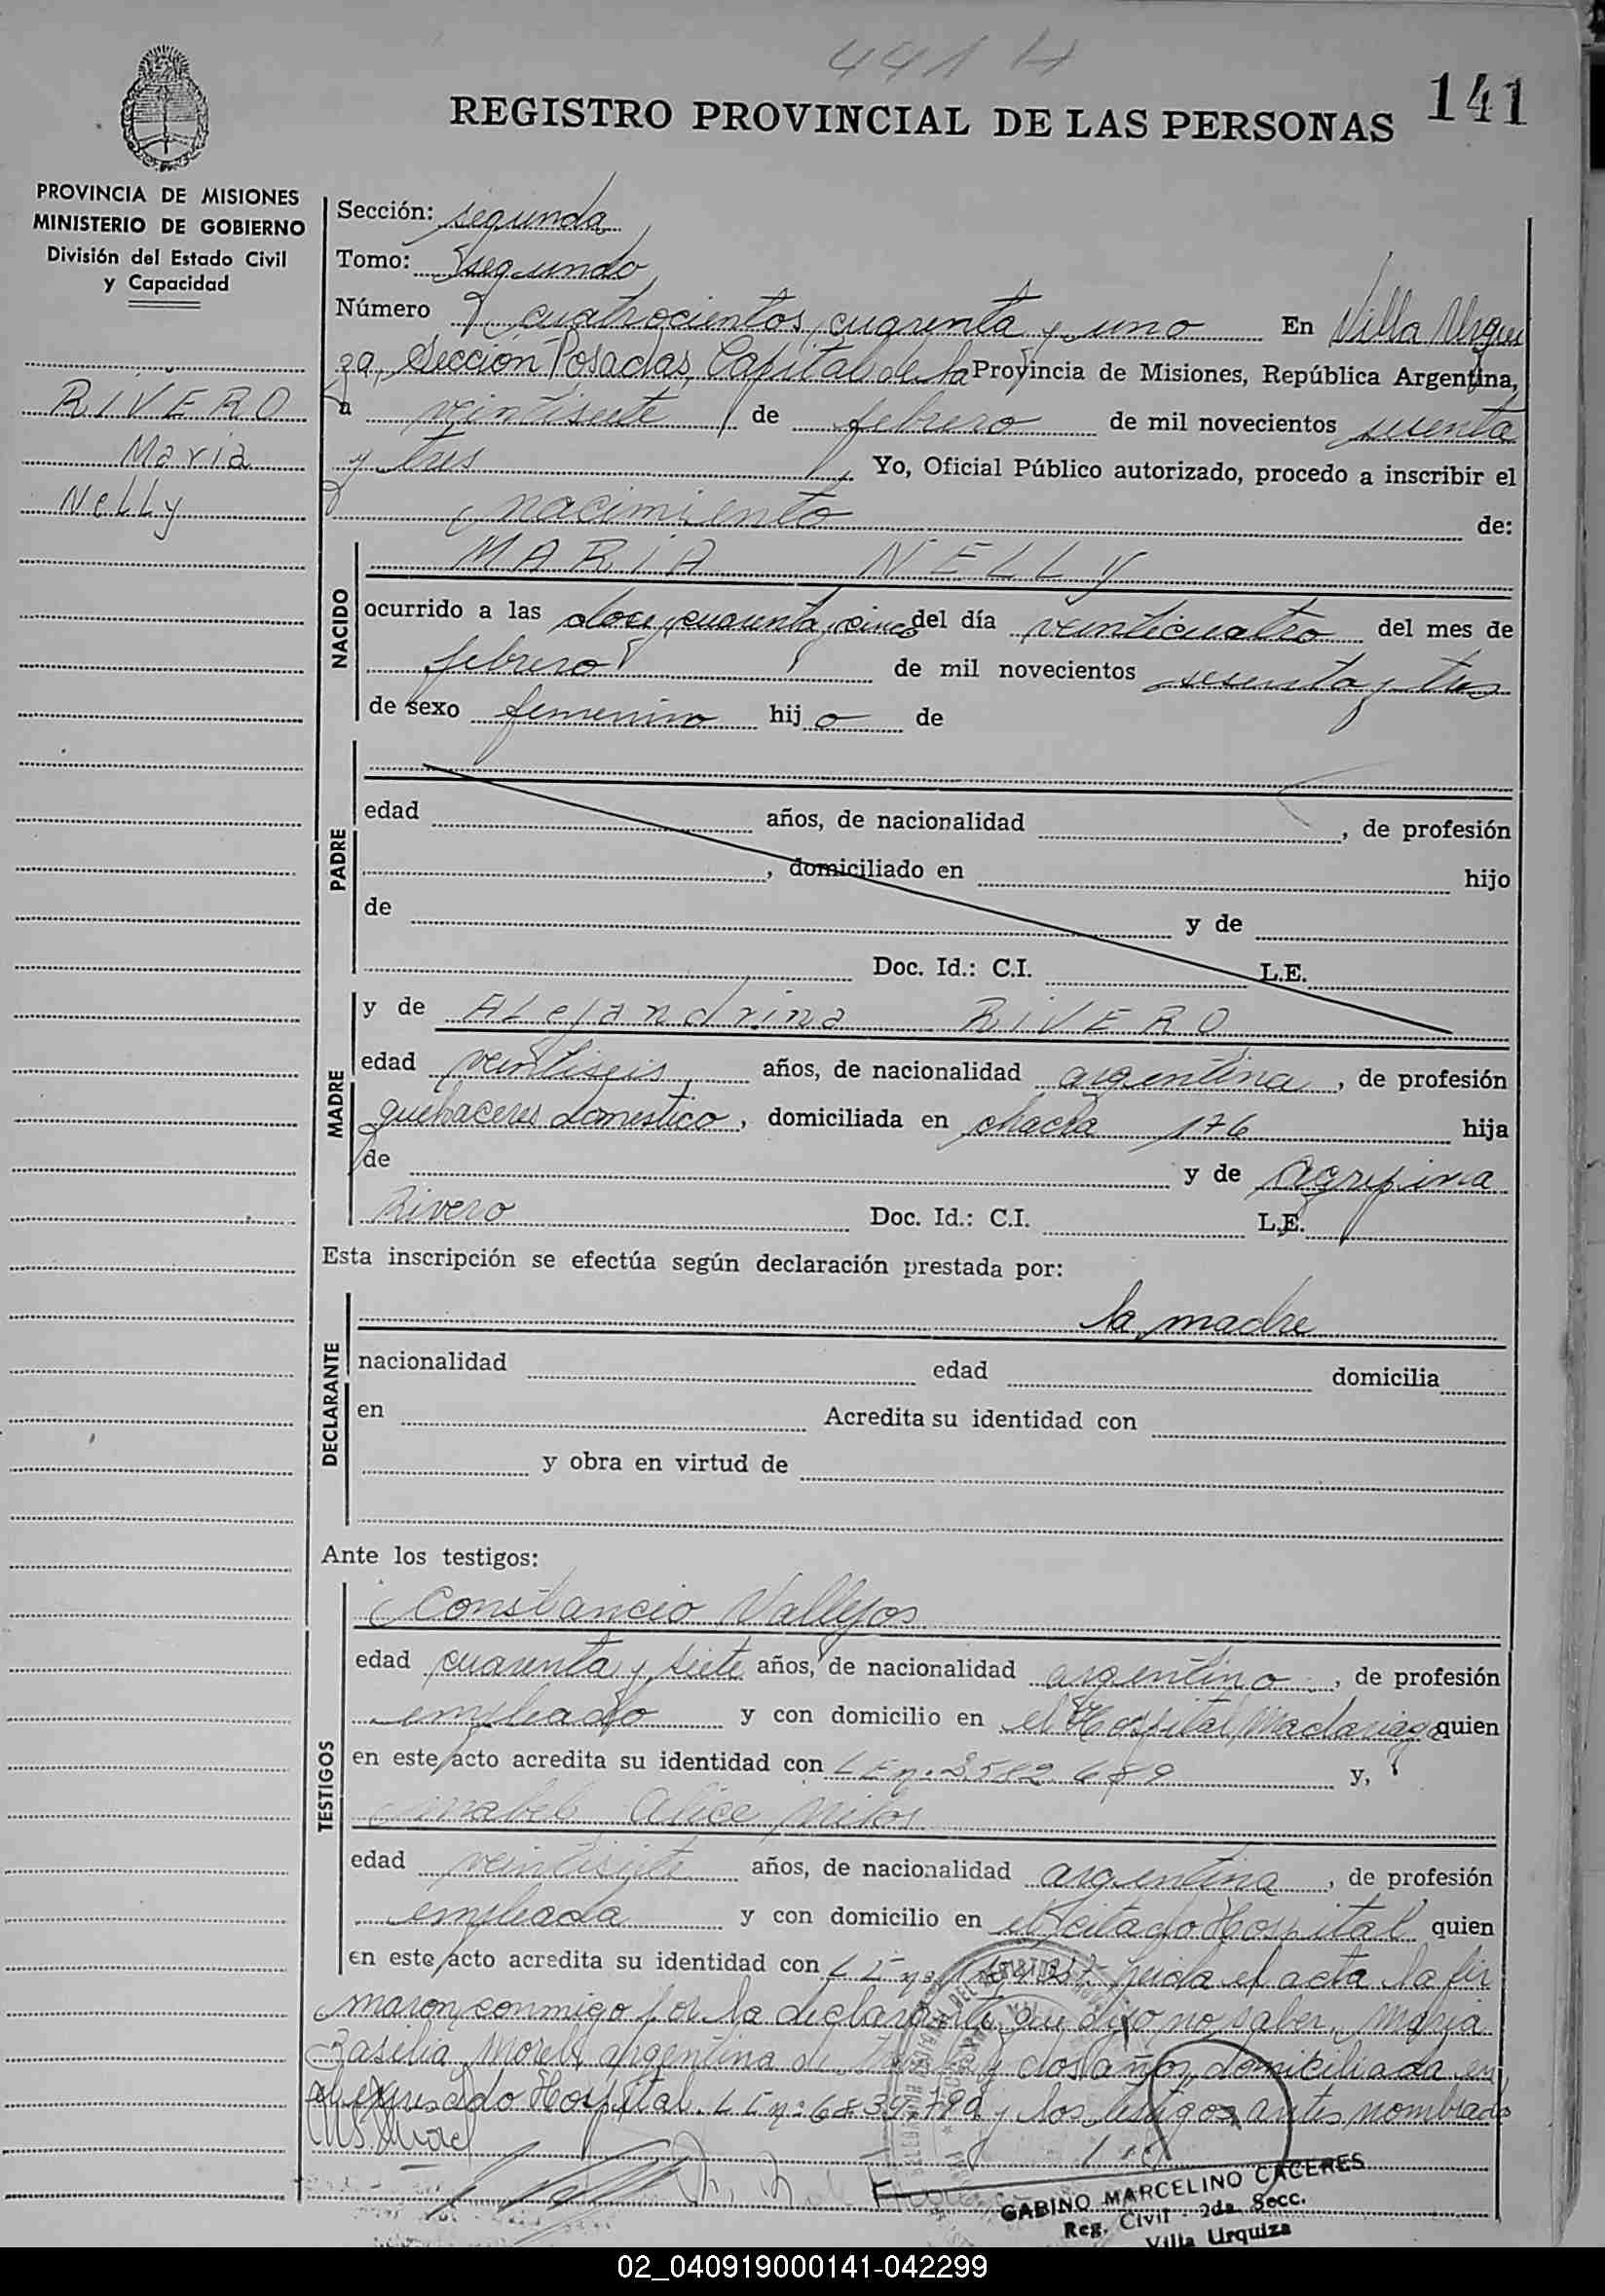 441 H
141
REGISTRO PROVINCIAL DE LAS PERSONAS
PROVINCIA DE MISIONES
MINISTERIO DE GOBIERNO
División del Estado Civil
y Capacidad
RIVERO
Maria
Nelly
Sección: segunda
Tomo: segundo
Número cuatrocientos cuarenta y uno En Villa Urqui
za, Sección Posadas, Capital de la Provincia de Misiones, República Argentina,
a veintisiete de febrero de mil novecientos sesenta
y tres Yo, Oficial Público autorizado, procedo a inscribir el
nacimiento de:
NACIDO
MARIA NELLY
ocurrido a las doce y cuarenta y cinco del día veinticuatro del mes de
febrero de mil novecientos sesenta y tres
de sexo femenino hij a de
PADRE
edad años, de nacionalidad , de profesión
, domiciliado en hijo
de y de
Doc. Id.: C.I. L.E.
MADRE
y de Alejandrina RIVERO
edad veintiseis años, de nacionalidad argentina, de profesión
quehaceres domestico, domiciliada en chacra 176 hija
de y de Agripina
Rivero Doc. Id.: C.I. L.E.
Esta inscripción se efectúa según declaración prestada por:
DECLARANTE
la madre
nacionalidad edad domicilia
en Acredita su identidad con
y obra en virtud de
Ante los testigos:
TESTIGOS
Constancio Vallejos
edad cuarenta y siete años, de nacionalidad argentino, de profesión
empleado y con domicilio en el Hospital Madariaga quien
en este acto acredita su identidad con L E nº y,
Alice
edad veintisiete años, de nacionalidad argentina, de profesión
empleada y con domicilio en el citado Hospital quien
en este acto acredita su identidad con L E nº leida el acta la fir
maron conmigo por la declarante que dijo no saber, Maria
Basilia Morel, argentina de y dos años, domiciliada en
el expresado Hospital. L E nº y los testigos antes nombrados
GABINO MARCELINO CACERES
Reg. Civil - 2da Secc.
Villa Urquiza
02_040919000141-042299